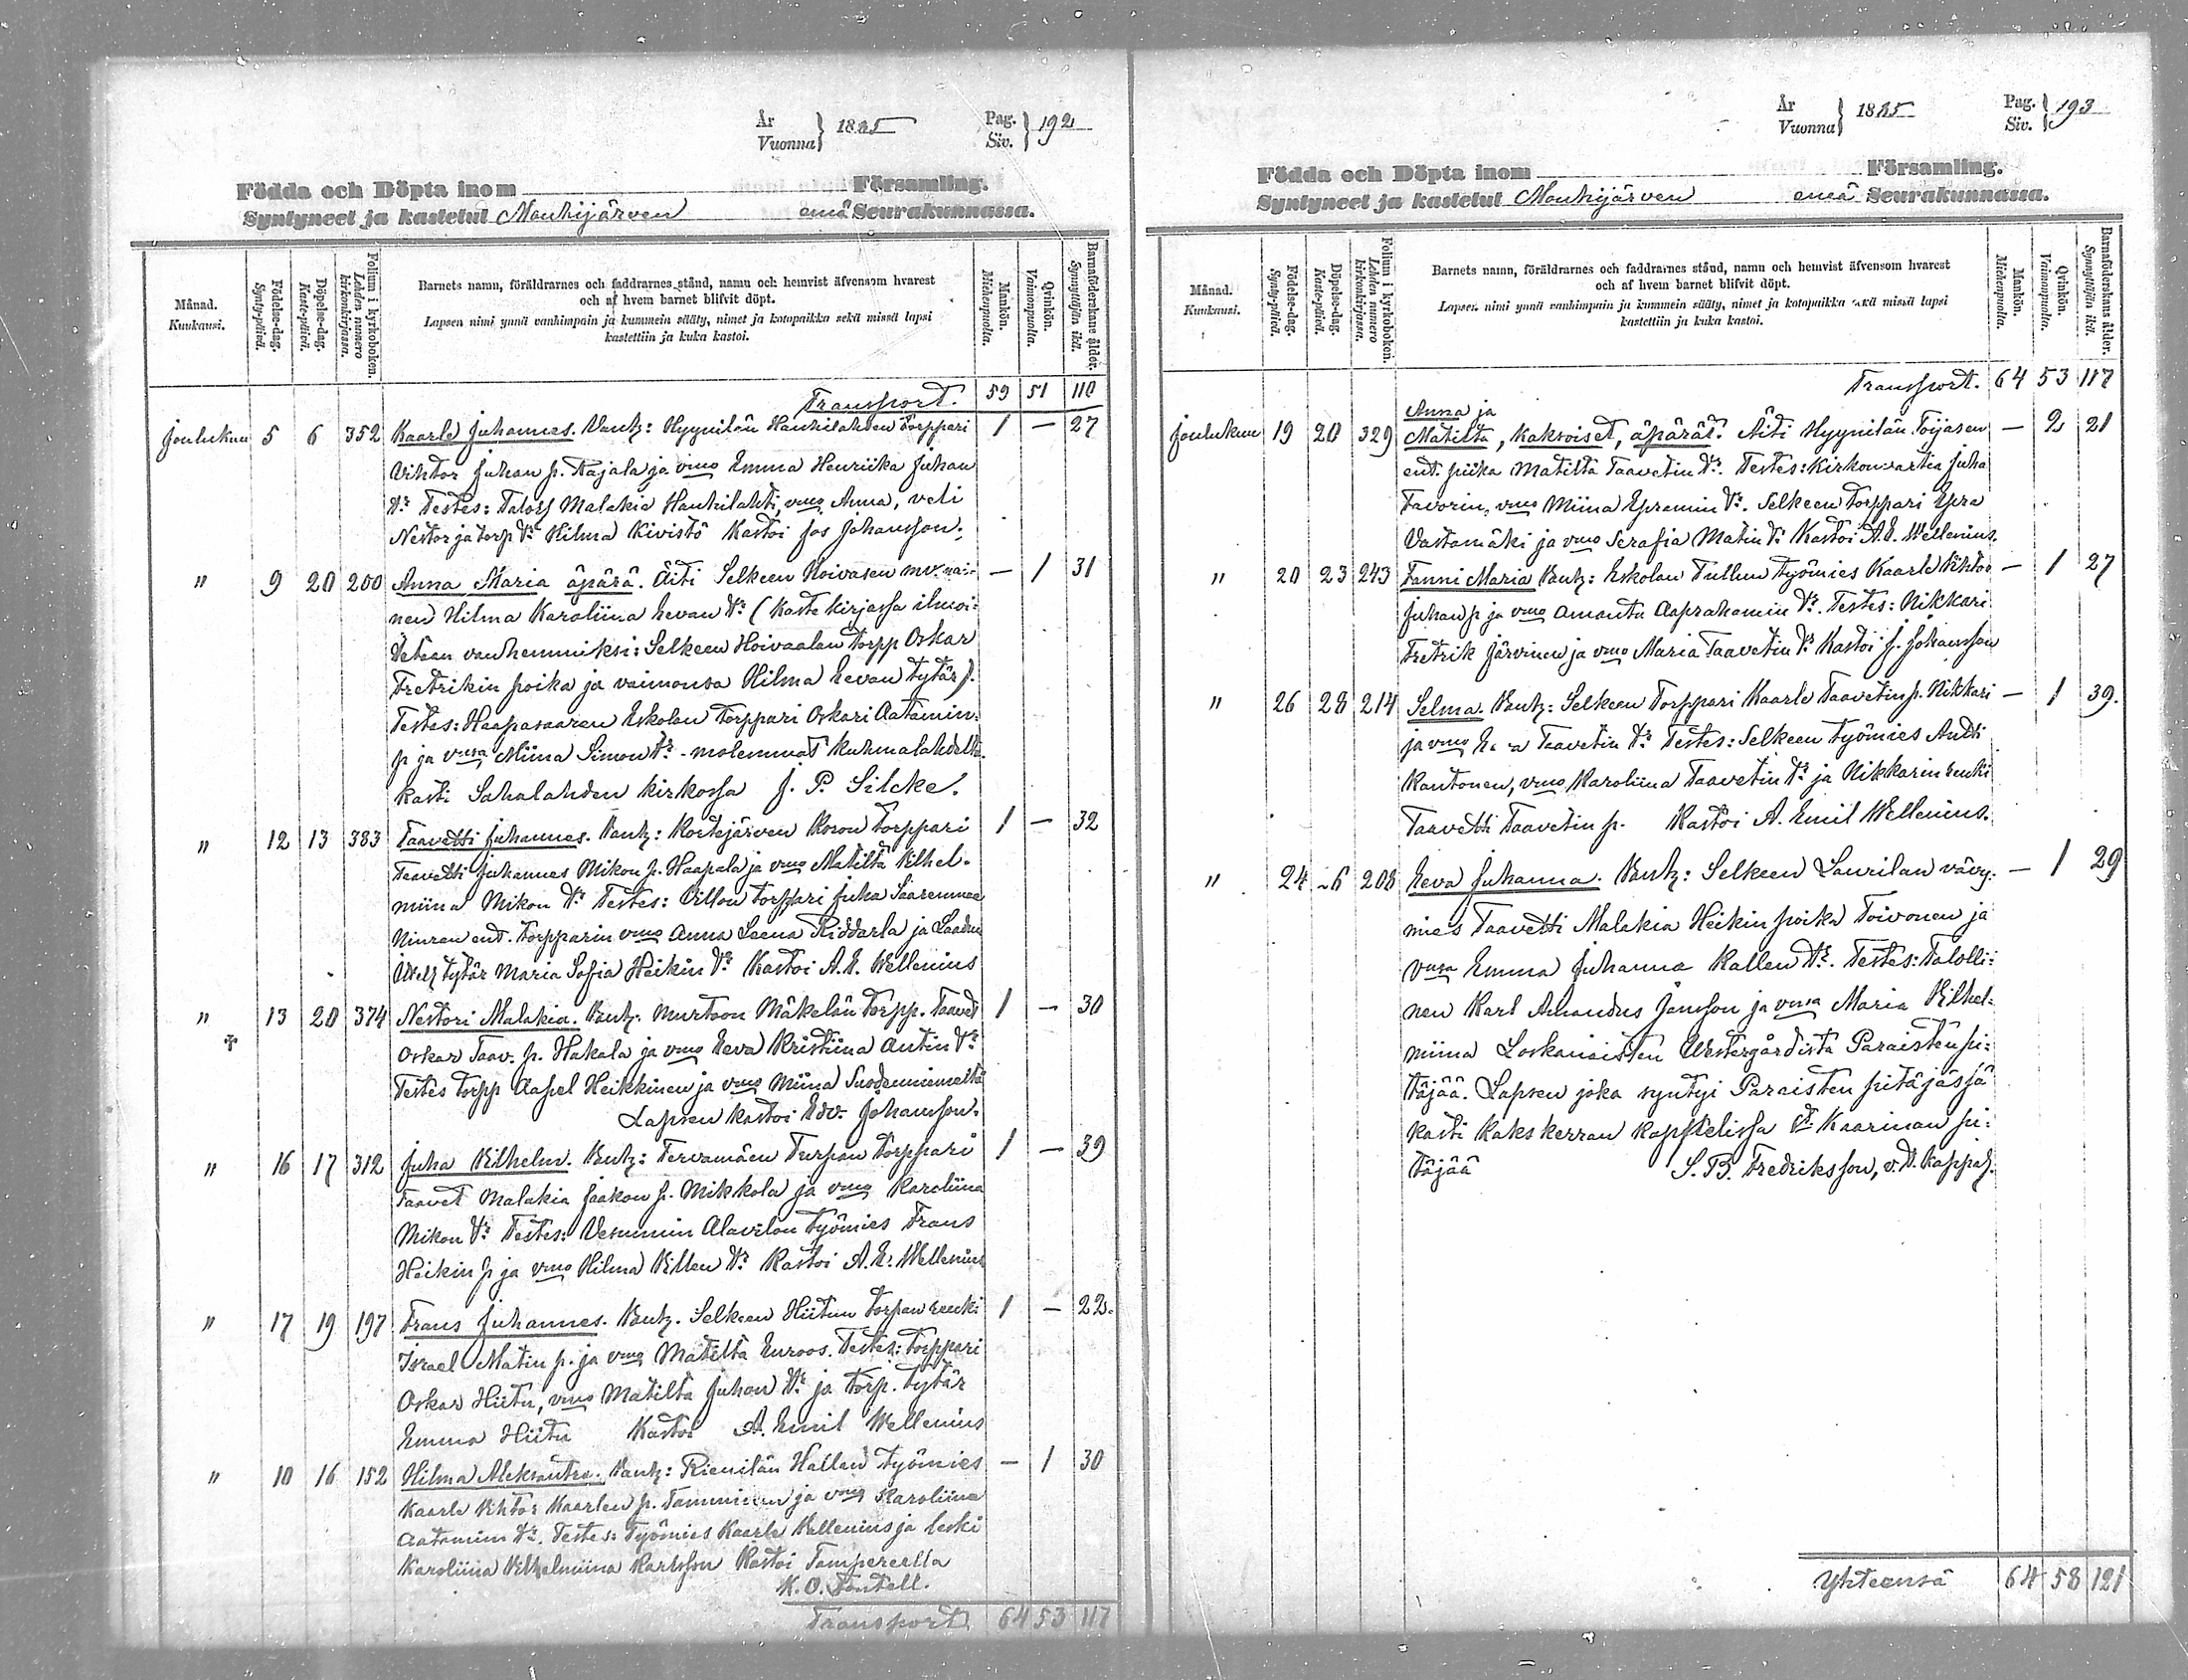 År
Vuonna } 1885
Pag.
Siv. } 192
Födda och Döpta inom Församling.
Syntyneet ja kastetut Mouhijärven emä Seurakunnassa.
Månad.
Kuukausi.
Födelse-dag.
Synty-päivä.
Döpelse-dag.
Kaste-päivä.
Folium i kyrkoboken.
Lehden numero kirkonkirjassa.
Barnets namn, föräldrarnes och faddrarnes stånd, namn och hemvist äfvensom hvarest
och af hvem barnet blifvit döpt.
Lapsen nimi ynnä vanhimpain ja kummein sääty, nimet ja kotopaikka sekä missä lapsi
kastettiin ja kuka kastoi.
Mankön.
Miehenpuolia.
Qvinkön.
Vaimonpuolia.
Barnaföderskans ålder.
Synnyttäjän ikä.
Transport. 59 51 110
Joulukuu 5 6 352 Kaarle Juhannes. Vanh: Hyynilän Haukilahden Torppari 1 — 27
Vihtor Juhan p. Rajala ja vmo Emma Henriika Juhan
tr. Testes: Talol. Malakia Haukilahti, vmo Anna, veli
Nestor ja torp tr Hilma Kivistö Kastoi Jos Johansson.
" 9 20 200 Anna Maria äpärä. Äiti Selkeen Hoivasen mv. nai- — 1 31
nen Hilma Karoliina Eevan tr (Kastekirjassa ilmoi-
tetaan vanhemmiksi: Selkeen Hoivaalan torpp Oskar
Fretrikin poika ja vaimonsa Hilma Eevan tytär).
Testes: Haapasaaren Eskolan torppari Oskari Aatamin-
p ja vmsa Miina Simon tr - molemmat Kuhmalahdelta.
kasti Sahalahden kirkossa J. P. Silcke.
" 12 13 383 Taavetti Juhannes. Vanh: Kortejärven Koron Torppari 1 — 32
Taavetti Juhannes Mikon p. Haapala ja vmo Matilta Vilhel-
miina Mikon tr Testes: Oillon torppari Juha Saarenmaa
ent. Torpparin vmo Anna Leena Riddarla ja Laadun
tytär Maria Sofia Heikin tr Kastoi A. E. Wellenius
" 13 20 374 Nestori Malakia. Vanh. Murtoon Mäkelän Torpp. Taavet 1 — 30
Oskar Taav. p. Hakala ja vmo Eeva Kristiina Antin tr
Testes torpp Aapel Heikkinen ja vmo Miina Suodenniemeltä
Lapsen kastoi Edv. Johansson.
" 16 17 312 Juha Vilhelm. Vanh: Tervamäen Turpan Torppari 1 — 39
Taavet Malakia Jaakon p. Mikkola ja vmo Karoliina
Mikon tr Testes: Vesunnin Alavilan Työmies Frans
Heikin p ja vmo Hilma Villen tr Kastoi A. E. Wellenius
" 17 19 197 Frans Juhannes. Vanh. Selkeen Hiitun torpan renki 1 — 22.
Israel Matin p. ja vmo Matilta Euroos. Testes: Torppari
Oskar Hiitu, vmo Matilta Juhan tr ja torp. tytär
Emma Hiitu Kastoi A. Emil Wellenius
" 10 16 152 Hilma Aleksantra. Vanh: Rienilän Hallan Työmies — 1 30
Kaarle Vihtor Kaarlen p. Tamminen ja vmo Karoliina
Aatamin tr. Testes: Työmies Kaarle Vellenius ja leski
Karoliina Vilhelmiina Karlsson Kastoi Tampereella
K. O. Fontell.
Transport 64 53 117
År
Vuonna } 1885
Pag.
Siv. } 193
Födda och Döpta inom Församling.
Syntyneet ja kastetut Mouhijärven emä Seurakunnassa.
Månad.
Kuukausi.
Födelse-dag.
Synty-päivä.
Döpelse-dag.
Kaste-päivä.
Folium i kyrkoboken.
Lehden numero kirkonkirjassa.
Barnets namn, föräldrarnes och faddrarnes stånd, namn och hemvist äfvensom hvarest
och af hvem barnet blifvit döpt.
Lapsen nimi ynnä vanhimpain ja kummein sääty, nimet ja kotopaikka sekä missä lapsi
kastettiin ja kuka kastoi.
Mankön.
Miehenpuolia.
Qvinkön.
Vaimonpuolia.
Barnaföderskans ålder.
Synnyttäjän ikä.
Transport. 64 53 117
Anna ja
Joulukuu 19 20 329 Matilta, kaksoiset, äpärät. Äiti Hyynilän Toijasen — 2 21
ent. piika Matilta Taavetin tr. Testes: Kirkonvartia Juha
Favorin, vmo Miina Epramin tr. Selkeen torppari Epra
Vastamäki ja vmo Serafia Matin tr Kastoi A. E. Wellenius.
" 20 23 243 Fanni Maria Vanh: Eskolan Tullun Työmies Kaarle Vihtor — 1 27
Juhan p ja vmo Amanta Aaprahamin tr. Testes: Nikkari
Fretrik Järvinen ja vmo Maria Taavetin tr Kastoi J. Johansson
" 26 28 214 Selma. Vanh: Selkeen Torppari Kaarle Taavetin p. Nikkari — 1 39.
ja vmo Taavetin tr Testes: Selkeen työmies Antti
Kantonen, vmo Karoliina Taavetin tr ja Nikkarin renki
Taavetti Taavetin p. Kastoi A. Emil Wellenius.
" 24 26 208 Eeva Juhanna. Vanh: Selkeen Laurilan vävy- — 1 29
mies Taavetti Malakia Heikin poika Toivonen ja
vmsa Emma Juhanna Kallen tr. Testes: Talolli-
nen Karl Amandus Jansson ja vmsa Maria Vilhel-
miina Loskanaisten Westergårdista Paraisten pi-
täjää. Lapsen joka syntyi Paraisten pitäjässä
kasti Kakskerran kappelissa St. Kaarinan pi-
täjää S. B. Fredriksson, v.t. kappal.
Yhteensä 64 58 121